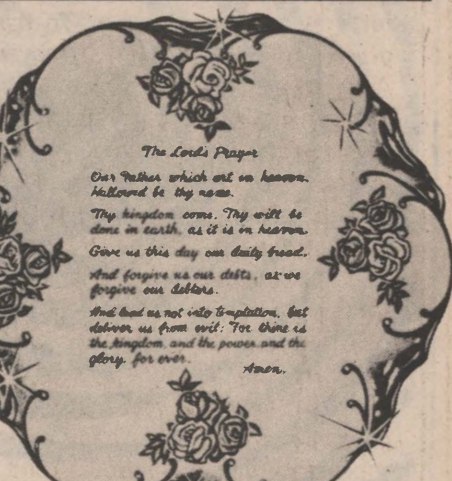 The Lord's Prayer
Our Father which art in heaven.
Hallowed be thy name.
Thy kingdom come. Thy will be
done in earth, as it is in heaven.
Give us this day our daily bread.
And forgive us our debts, as we
forgive our debtors.
And lead us not into temptation, but
deliver us from evil: For thine is
the kingdom, and the power, and the
glory. for ever.
Amen.